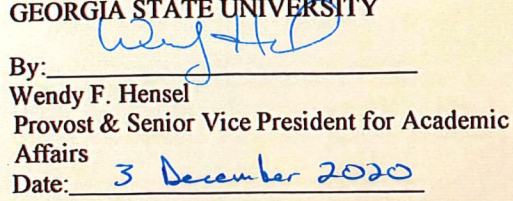 GEORGIA STATE UNIVERSITY
By:
Wendy F. Hensel
Provost & Senior Vice President for Academic
Affairs
Date: 3 December 2020